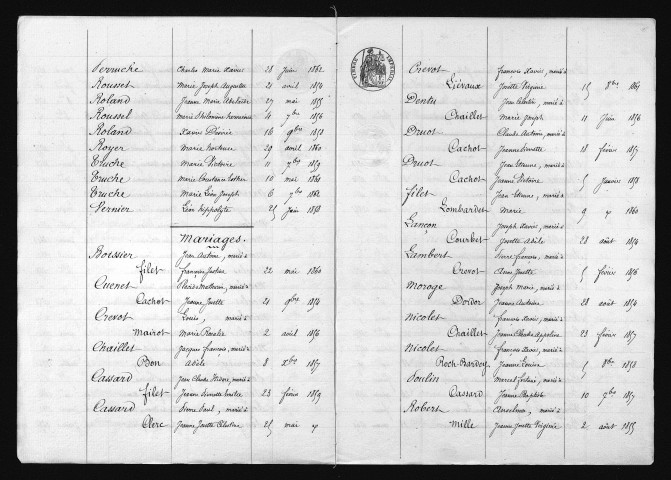 Perruche Charles Marie Xavier 28 Juin 1862
Rousset Marie Joseph Augustin 21 avril 1854
Roland Jeanne Marie 27 mai 1855
Roussel Marie Philomène 4 7bre 1856
Roland Xavier 16 9bre 1858
Royer Marie 29 avril 1860
Truche Marie Victoire 11 7bre 1859
Truche Marie Constance 10 mai 1861
Truche Marie Léon Joseph 6 7bre 1862
Vernier Léon hippolyte 25 Juin 1858
Mariages.
Boissier Jean Antoine, marié à
filet françoise Justine 22 mai 1860
Cuenet marié à
Cachot Jeanne Josette 21 9bre 1854
Crevot Louis, marié à
Mairot Marie Rosalie 2 avril 1856
Chaillet Jacques françois, marié à
Bon Adèle 8 xbre 1857
Cassard Jean Claude marié à
filet Jeanne 23 février 1859
Cassard Pierre Paul, marié à
Clerc Jeanne Josette Célestine 25 mai
Crevot françois Xavier, marié à
Liévaux Josette 15 8bre 1861
Dentu Jean marié à
Chaillet Marie Joseph 11 Juin 1856
Druot Claude Antoine, marié à
Cachot Jeanne 18 février 1857
Druot Jean Etienne, marié à
Cachot Jeanne Victoire 5 Janvier 1858
filet Jean Etienne, marié à
Lombardet Marie 9 1860
Lançon Joseph Xavier, marié à
Courbet Josette Adèle 23 août 1854
Lambert Pierre françois, marié à
Crevot Anne Josette 5 février 1856
Moroge Joseph Marie, marié à
Doidor Jeanne Antoine 28 août 1854
Nicolet françois Xavier, marié à
Chaillet Jeanne Claude Appoline 23 février 1857
Nicolet françois Xavier, marié à
Roch-Bardey Jeanne Louise 5 8bre 1858
Soulin Marcel marié à
Cassard Jeanne Baptiste 10 7bre 1857
Robert Anselme, marié à
Mille Jeanne Josette Virginie 2 août 1855